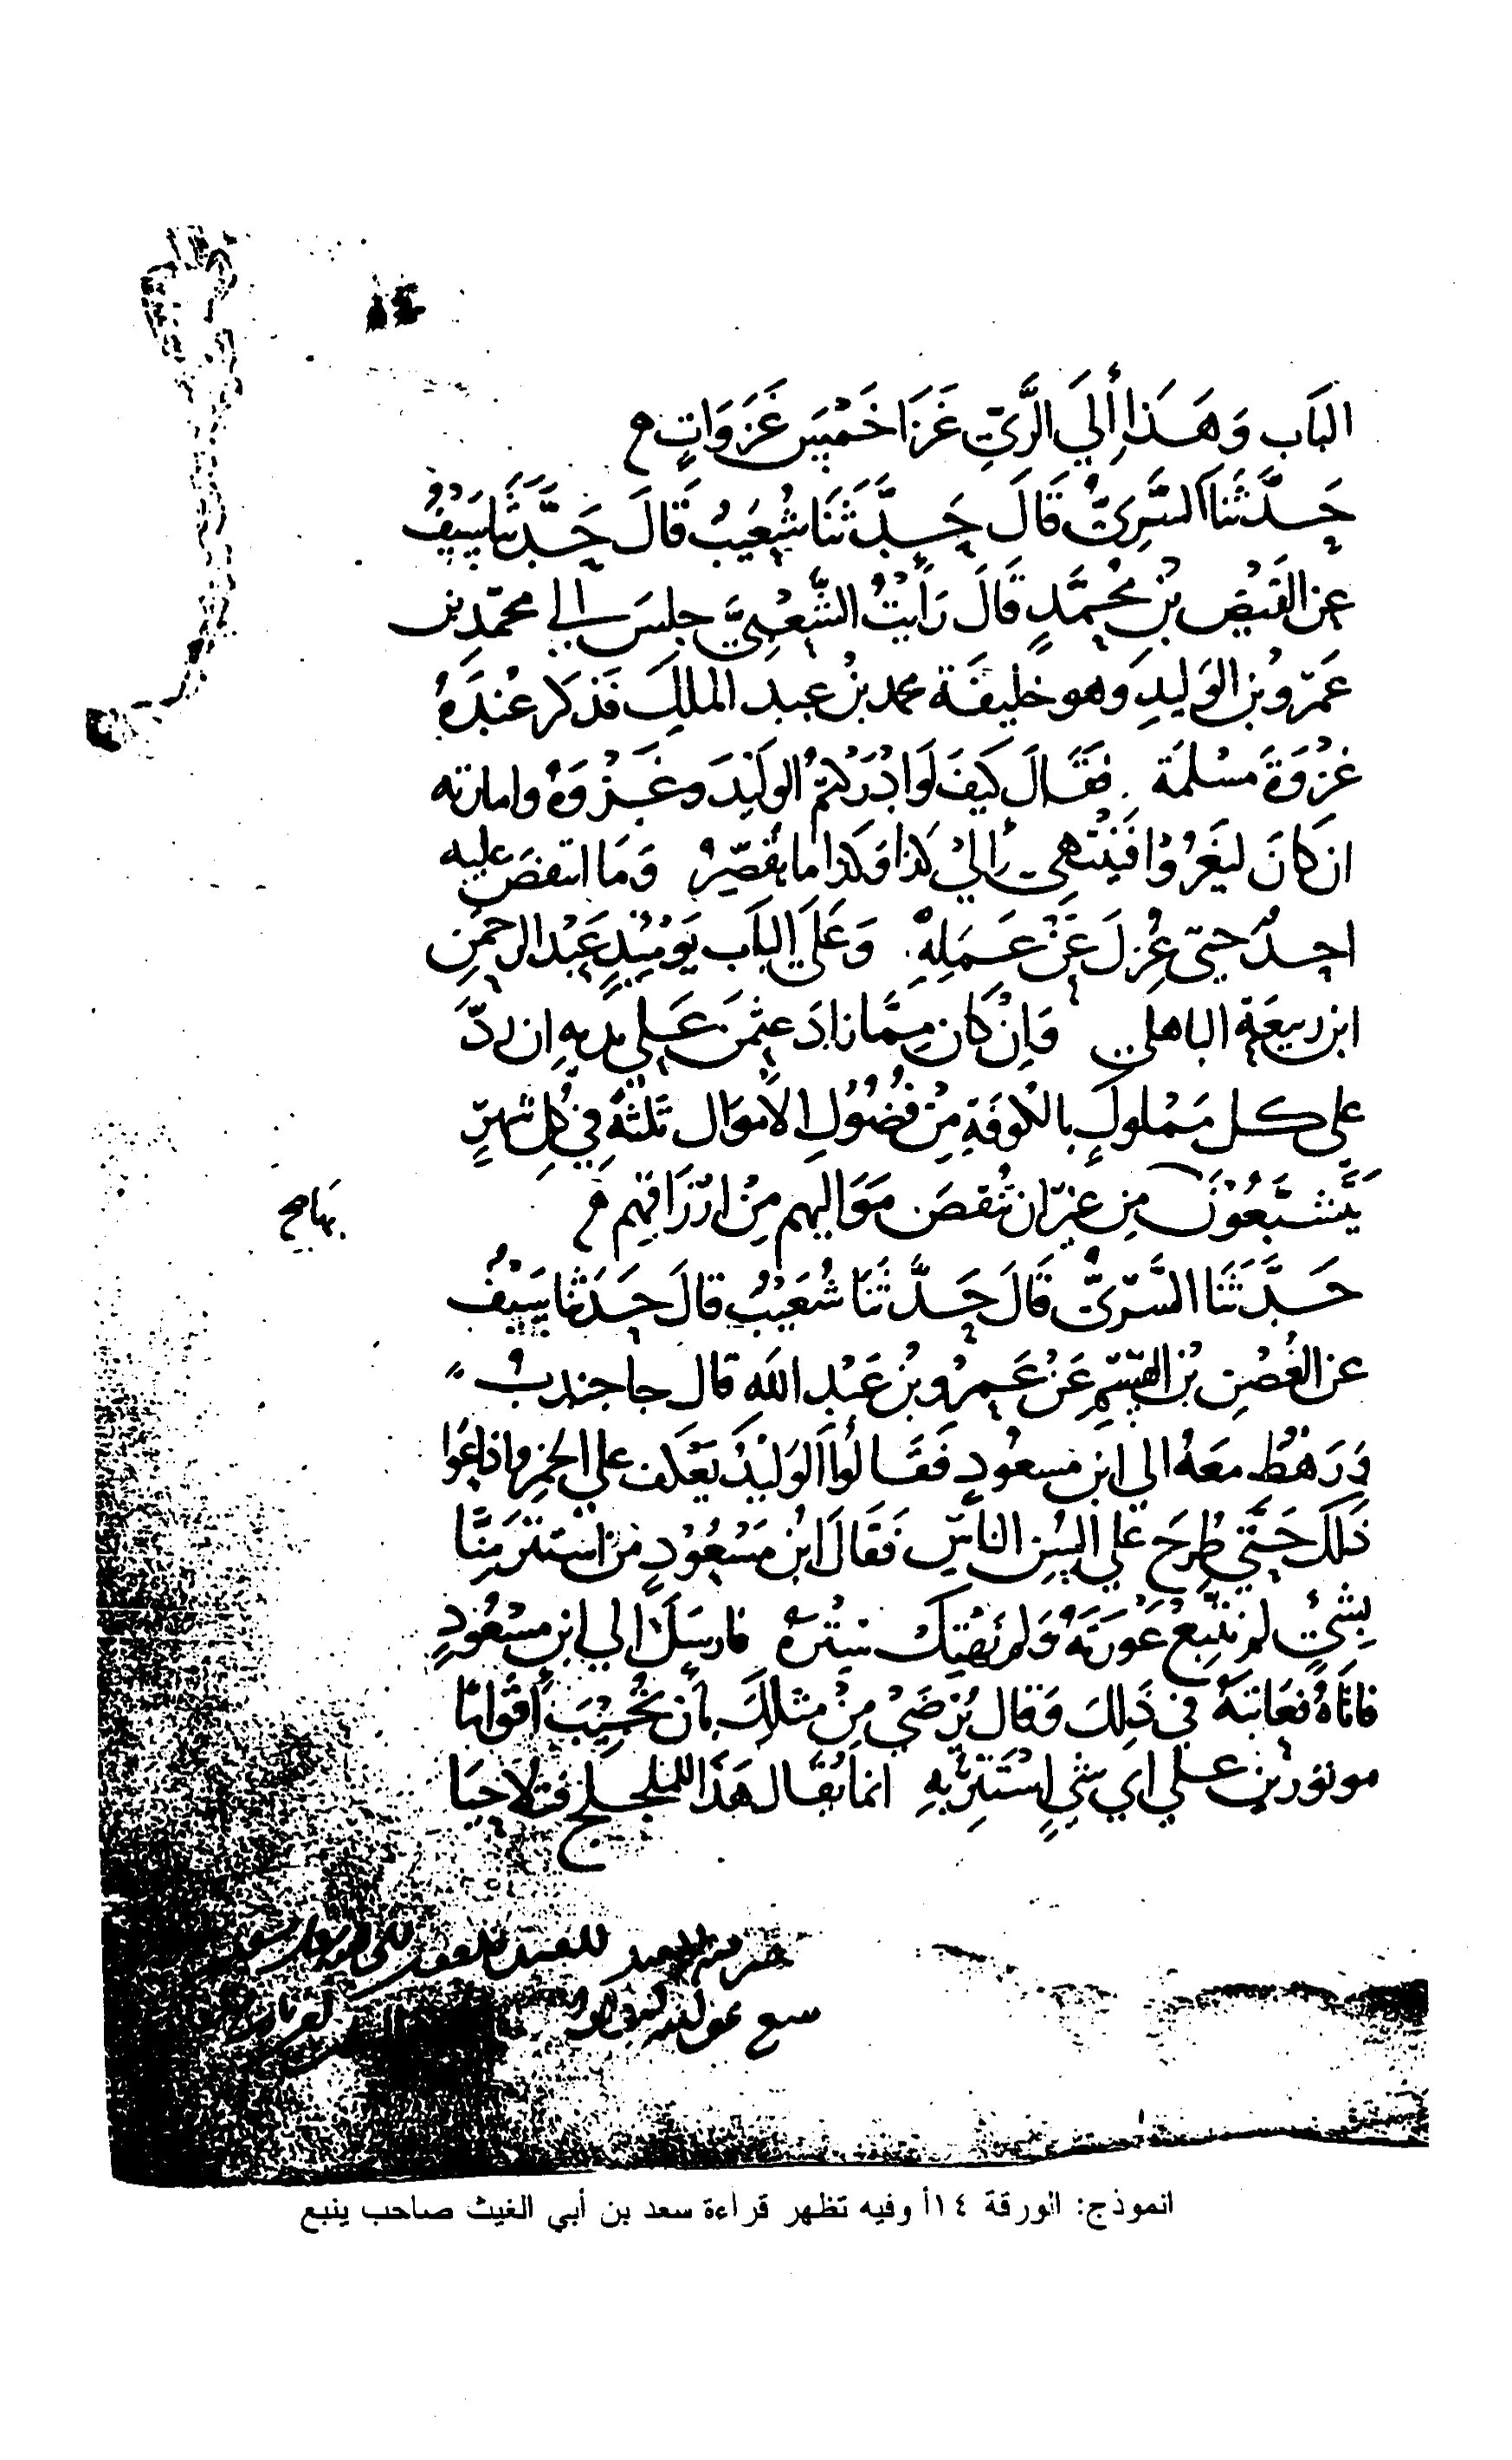 البَاب وَهَذَا إِلَي الرَّيِّ غَزَا خَمْسَ غَزَوَاتٍ
حَدَّثَنَا السَّرِيُّ قَالَ حَدَّثَنَا شُعَيبٌ قَالَ حَدَّثَنا سَيفٌ
عن الفَيْضِ بْنِ مُحَمَّدٍ قَالَ رَأَيْتُ الشَّعْبِيَّ جلسَ الي محمّد بن
عَمْرو بْن الوَليدِ وهو خليفَة محمد بنُ عبد الملكِ فذكر عْندَهُ
غزْوَةَ مسْلمَة فقَالَ كيفَ لَوادْرَكْتُمُ الوَلَيْدَ وغَزْوَهُ وامارته
ان كانَ ليَغزُوُا فَيَنْتَهي إِلَيْ كذا وَكذا ما يُقصِّرُ وَمَا انتقضَ عليه
احدٌ حتيّ عُزِلَ عَنْ عَمَلِهْ وَعَلَي البَاب يَوْمَئِذٍ عَبْدُ الرحمَنِ
ابن ربيعَة الباهلي وَاِنْ كان مِمَّا زادَ عثمنَ عَلي يديهِ ان ردَّ
علي كل مَمْلوكٍ بالكوفَةِ مِنْ فُضُوُلِ الاموَال ثلثَةً فيِ كُلِ شهرٍ
يَتَّسَّعُوْنَ من غيرِ ان يُنْقصَ مَوَاليهم مِنْ ارْزَاقهِم
بها صح
حَدَّثَنَا السَّرِيُّ قَالَ حَدَّثَنَا شُعَيْبُ قالَ حَدَثنا سَيْفُ
عن الغُصْنِ بْن القَسِمِ عَنْ عَمرْو بْن عَبْدِ اللهِ قال جا جندبُ
في رَهْطٍ معَهُ الي ابنِ مسعُودٍ فَقَالُوا الوَليْدُ يَعْكف علي الخمْرِ واذاعُوا
ذَلكَ حَتَّي طُرِحَ علي أَلْسُنِ الناسِ فَقَالَ ابْن مَسْعُوْدٍ مَن استَتَرَ مِنَّا
بِشَيْءٍ لم نتَّبِعْ عَوْرَتَهُ وَلم نَهْتِكْ سِتْرَهُ فارسَلَ الي ابنِ مسْعُودٍ
فاتاهُ فعَاتبَهُ في ذَلِكَ وَقال يُرْضَيْ مِنْ مثلِكَ بأن تُجِيْبَ أقْوامًا
موتورين علي اي شيٍ اسْتَتِرُ بهِ انما يُقَال هَذَا للمُلجلج فتلاحيَا
انموذج: الورقة ١٤أ وفيه تظهر قراءة سعد بن أبي الغيث صاحب ينبع